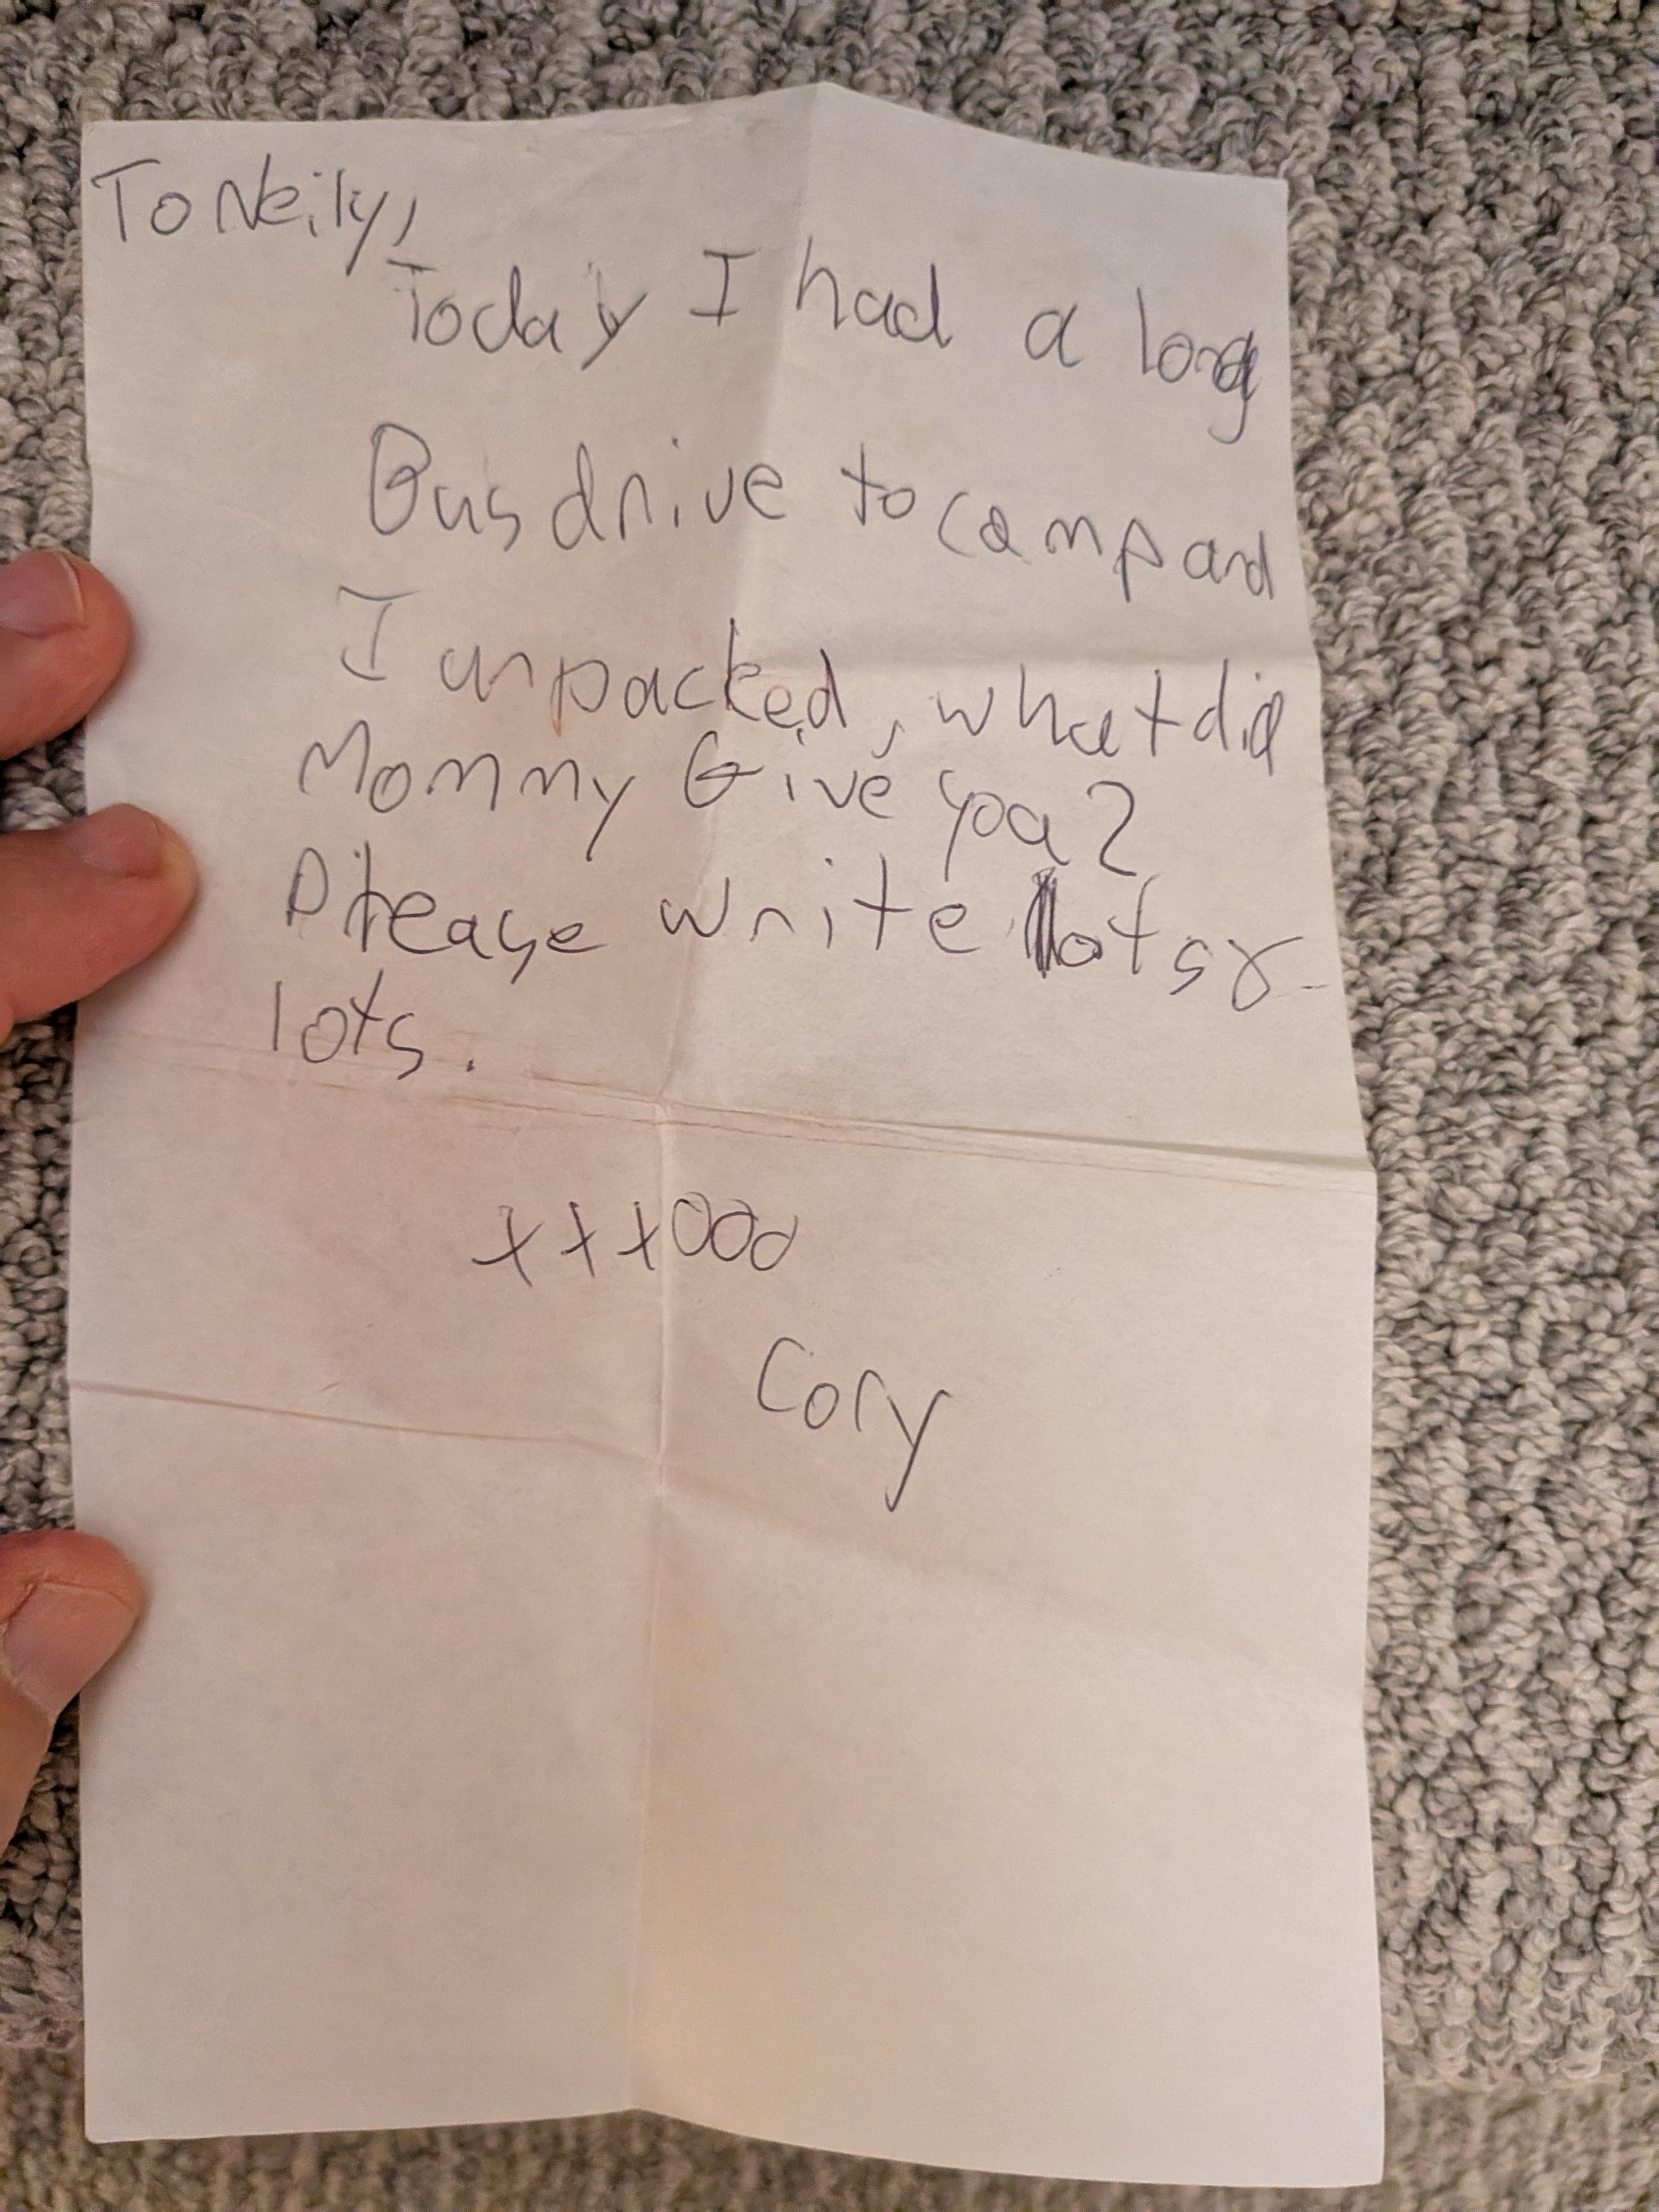 To Neily,
Today I had a long
Bus drive to camp and
I unpacked, what did
Mommy Give you?
Please write lots &
lots.
xxxOOO
Cory